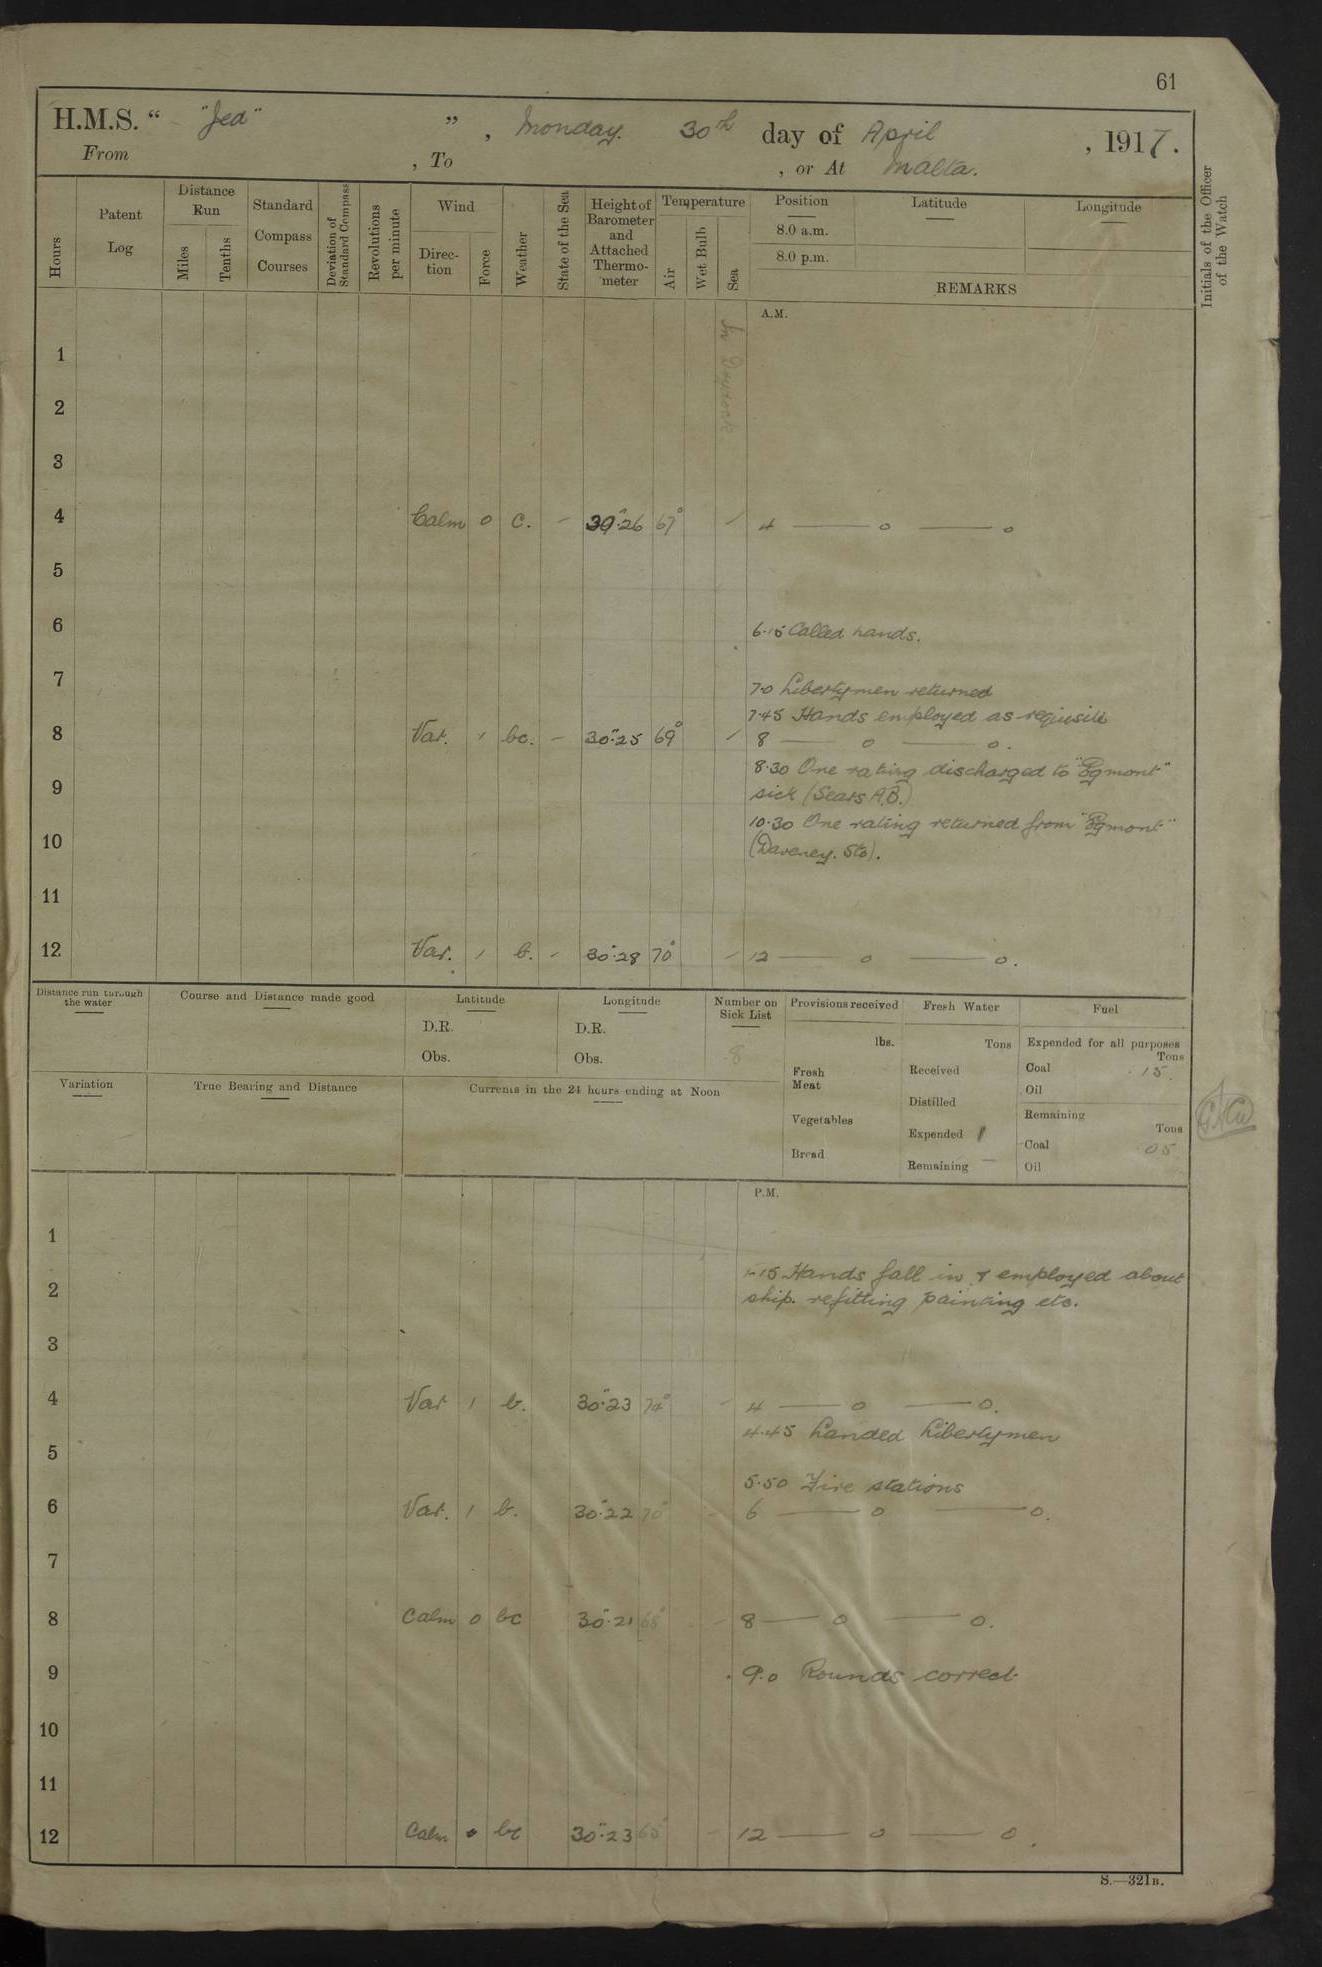 61
H.M.S. “ "Jed" ” , Monday. 30th day of April , 1917.
From , To , or At Malta.
Hours
Patent Log
Distance Run
Miles
Tenths
Standard Compass Courses
Deviation of Standard Compass
Revolutions per minute
Wind
Direc-tion
Force
Weather
State of the Sea
Height of Barometer and Attached Thermo-meter
Temperature
Air
Wet Bulb
Sea
Position
8.0 a.m.
8.0 p.m.
Latitude
Longitude
REMARKS
Initials of the Officer of the Watch
A.M.
1
2
3
4 Calm 0 c. - 30".26 67° - 4 — o — o
5
6
6.15 Called hands.
7
7.0 Libertymen returned
7.45 Hands employed as requisite
8 Var. 1 bc. - 30".25 69° - 8 — o — o.
8.30 One rating discharged to "Egmont"
9
sick (Sears A.B.)
10.30 One rating returned from "Egmont"
10
(Daveney. Sto).
11
12 Var. 1 b. - 30".28 70° - 12 — o — o.
Distance run through the water
Course and Distance made good
Latitude
D.R.
Obs.
Longitude
D.R.
Obs.
Number on Sick List
8
Provisions received
lbs.
Fresh Meat
Vegetables
Bread
Fresh Water
Tons
Received
Distilled
Expended 1
Remaining -
Fuel
Expended for all purposes
Tons
Coal .15.
Oil
Remaining
Tons
Coal 05
Oil
Variation
True Bearing and Distance
Currents in the 24 hours ending at Noon
P.M.
1
1.15 Hands fall in & employed about
2
ship. refitting painting etc.
3
4 Var 1 b. 30".23 74° - 4 — o — o.
4.45 Landed Libertymen
5
5.50 Fire stations
6 Var. 1 b. 30".22 70° - 6 — o — o.
7
8 Calm 0 bc 30".21 68° - 8 — o — o.
9 9.0 Rounds correct
10
11
12 Calm 0 bc 30".23 65° - 12 — o — o.
S.—321B.